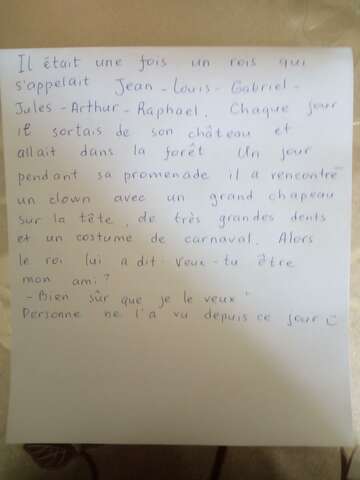 Il était une fois un rois qui
s'appelait Jean-Louis-Gabriel-
Jules-Arthur-Raphael. Chaque jour
il sortais de son château et
allait dans la forêt Un jour
pendant sa promenade il a rencontré
un clown avec un grand chapeau
sur la tête, de très grandes dents
et un costume de carnaval. Alors
le roi lui a dit-Veux-tu être
mon ami?
-Bien sûr que je le veux"
Personne ne l'a vu depuis ce jour